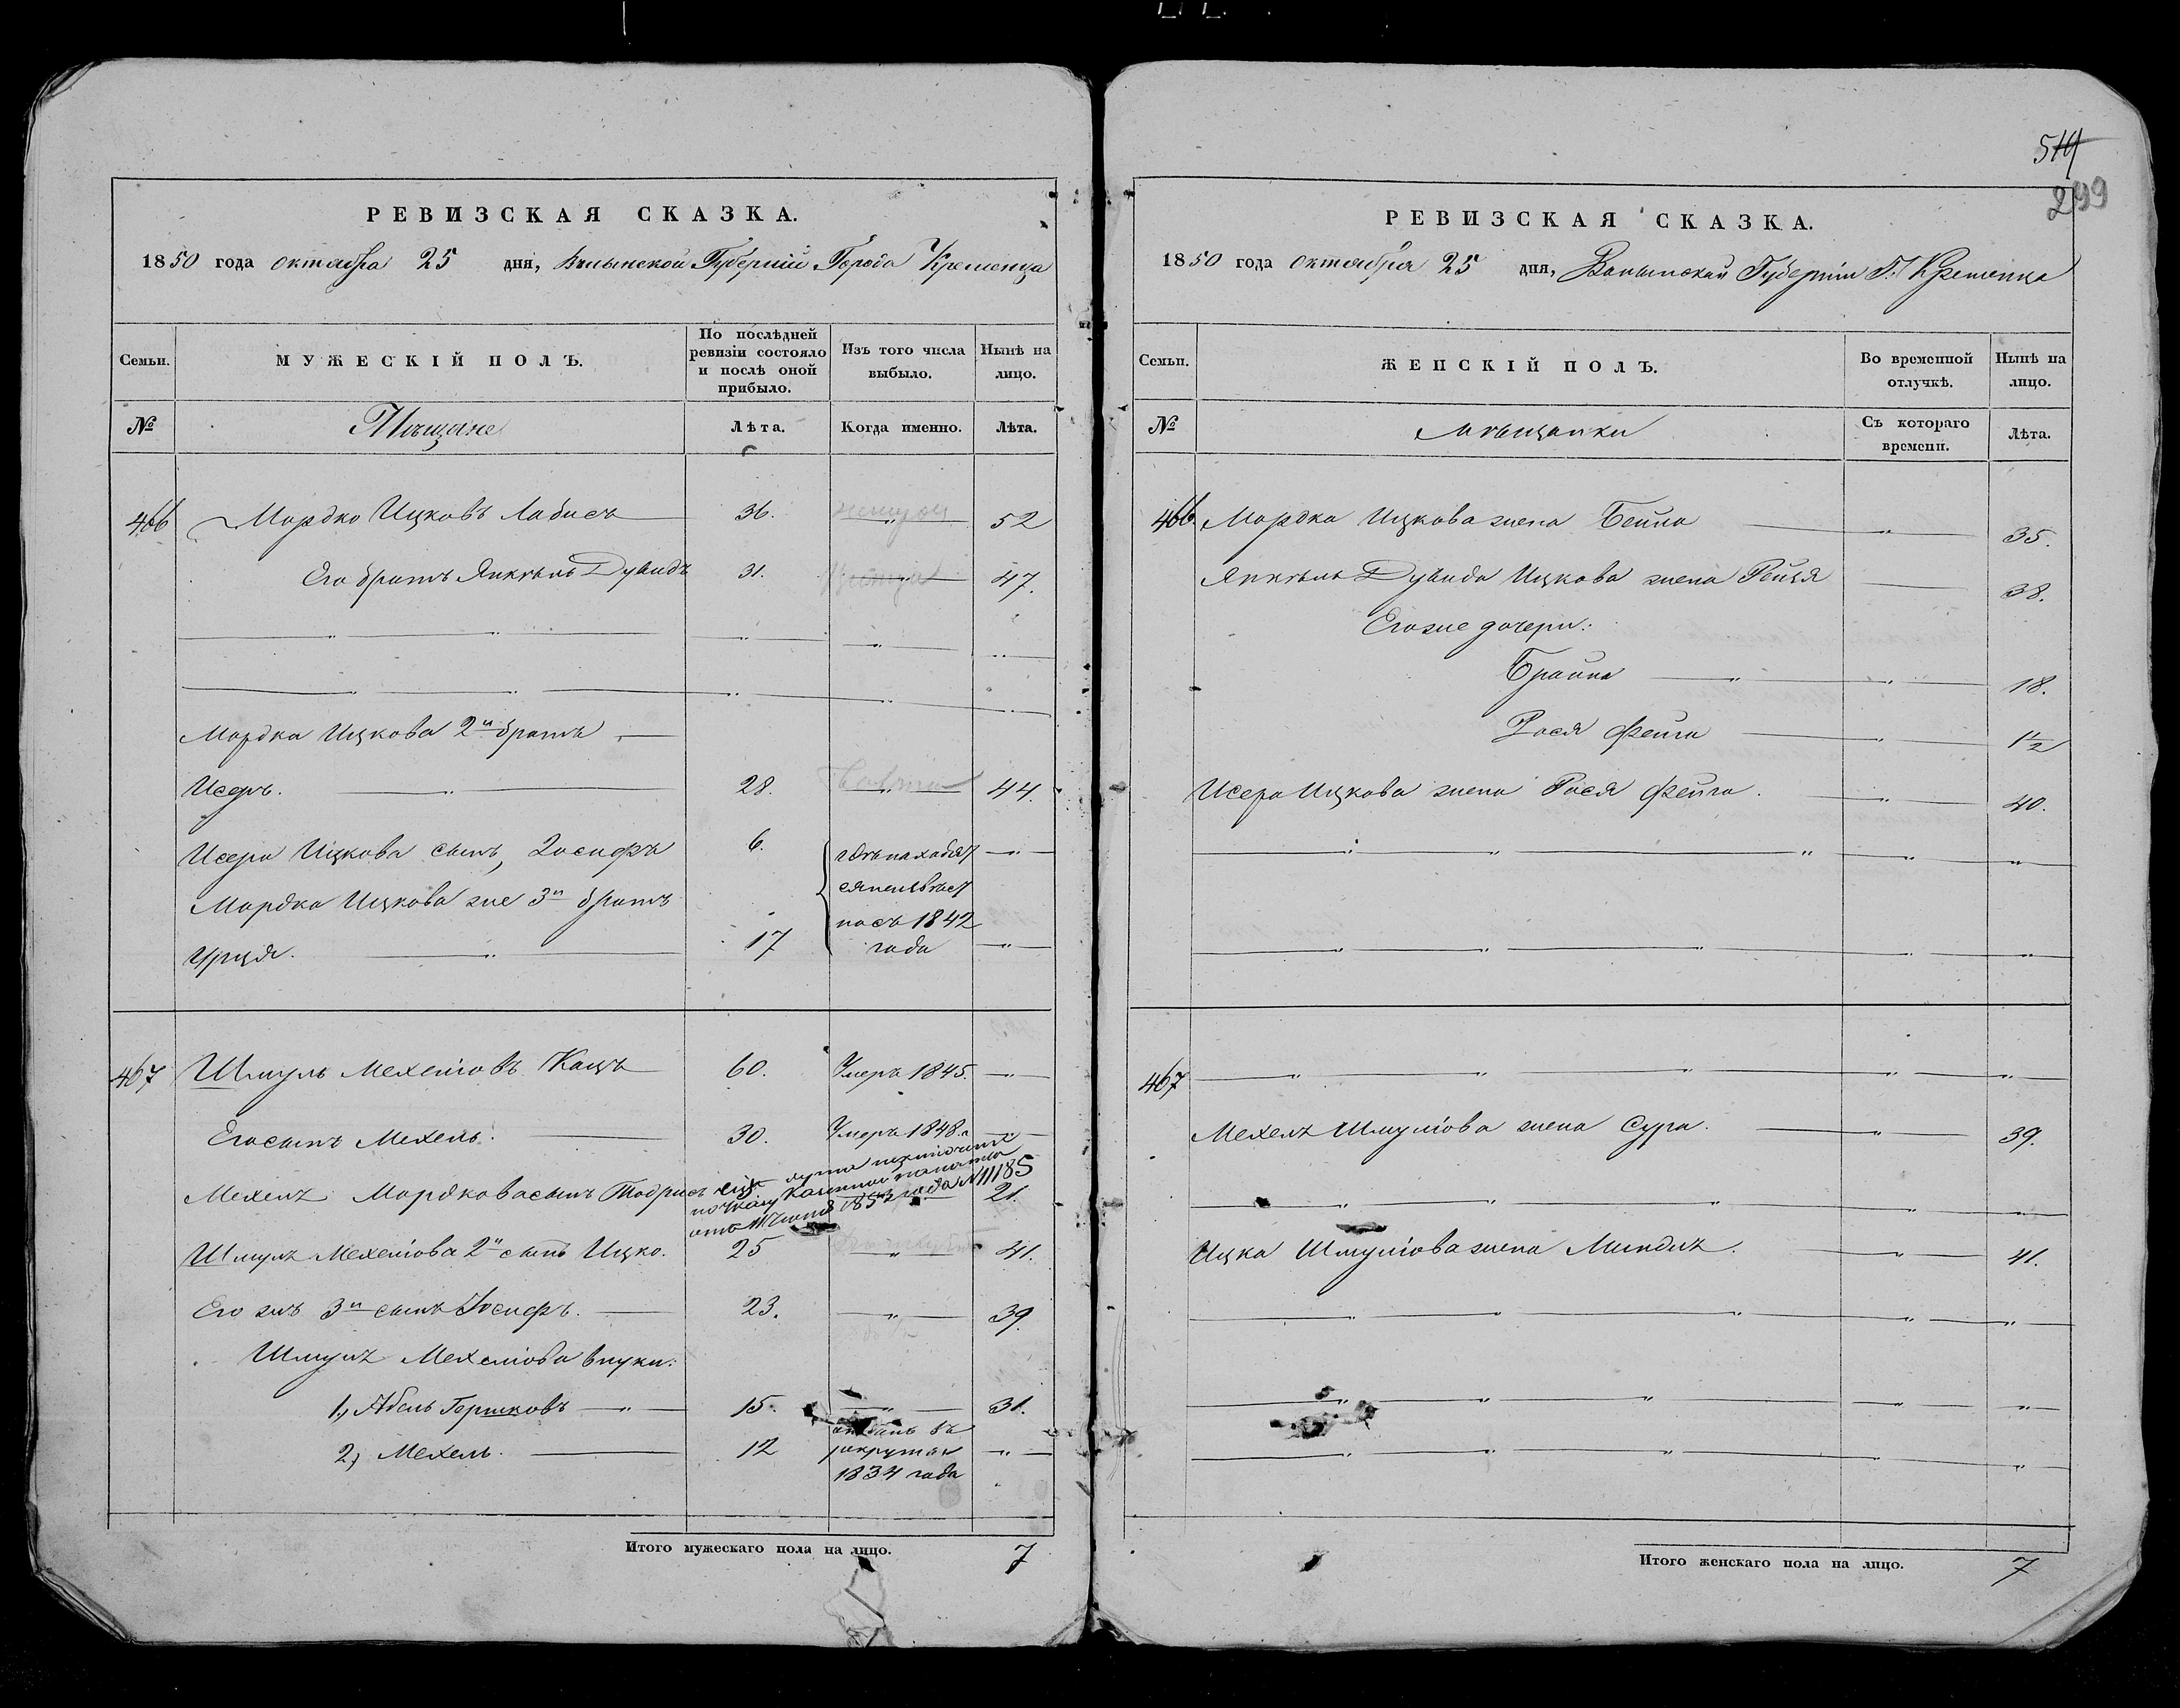 519
299
РЕВИЗСКАЯ СКАЗКА.
1850 года октября 25 дня, Волынской Губернiи Города Кременца
Семьи. МУЖЕСКIЙ ПОЛЪ. По послѣдней ревизiи состояло и послѣ оной прибыло. Изъ того числа выбыло. Нынѣ на лицо.
№ Мѣщане Лѣта. Когда именно. Лѣта.
466 Мордко Ицковъ Лабисъ 36. " 52
Его братъ Янкѣль Дувидъ 31. " 47.
Мордка Ицкова 2й братъ
Исеръ. " 28. " 44.
Исера Ицкова сынъ, Iосифъ 6. гдѣ находят "
ся неизвѣст
Мордка Ицкова же 3й братъ
но съ 1842
Урця. " 17 года "
467 Шмуль Мехелiовъ Кацъ 60. Умеръ 1845. "
Его сынъ Мехель. 30. Умеръ 1848. "
Мехеля Мордкова сынъ Тодрисъ 21.
по указу Казенной палаты
1853 года №11185
Шмуля Мехелiова 2й сынъ Ицко. 25 " 41.
Его же 3й сынъ Iосифъ. 23. " 39.
Шмуля Мехелiова внуки:
1, Абель Горшковъ " 15. " 31.
2, Мехель. 12 отданъ въ "
рекруты
1834 года
Итого мужескаго пола на лицо. 7
РЕВИЗСКАЯ СКАЗКА.
1850 года октября 25 дня, Волынской Губернiи Г. Кременца
Семьи. ЖЕНСКIЙ ПОЛЪ. Во временной отлучкѣ. Нынѣ на лицо.
№ мѣщанки Съ котораго времени. Лѣта.
466. Мордка Ицкова жена Бейла " 35.
Янкѣля Дувида Ицкова жена Рейзя 38.
Его же дочери:
Брайна " " 18.
Рося Фейга " 1 1/2
Исера Ицкова жена Рося Фейга. " 40.
467 " " " " "
Мехеля Шмулiова жена Сура. " 39.
Ицка Шмулiова жена Миндля. " 41.
Итого женскаго пола на лицо. 7